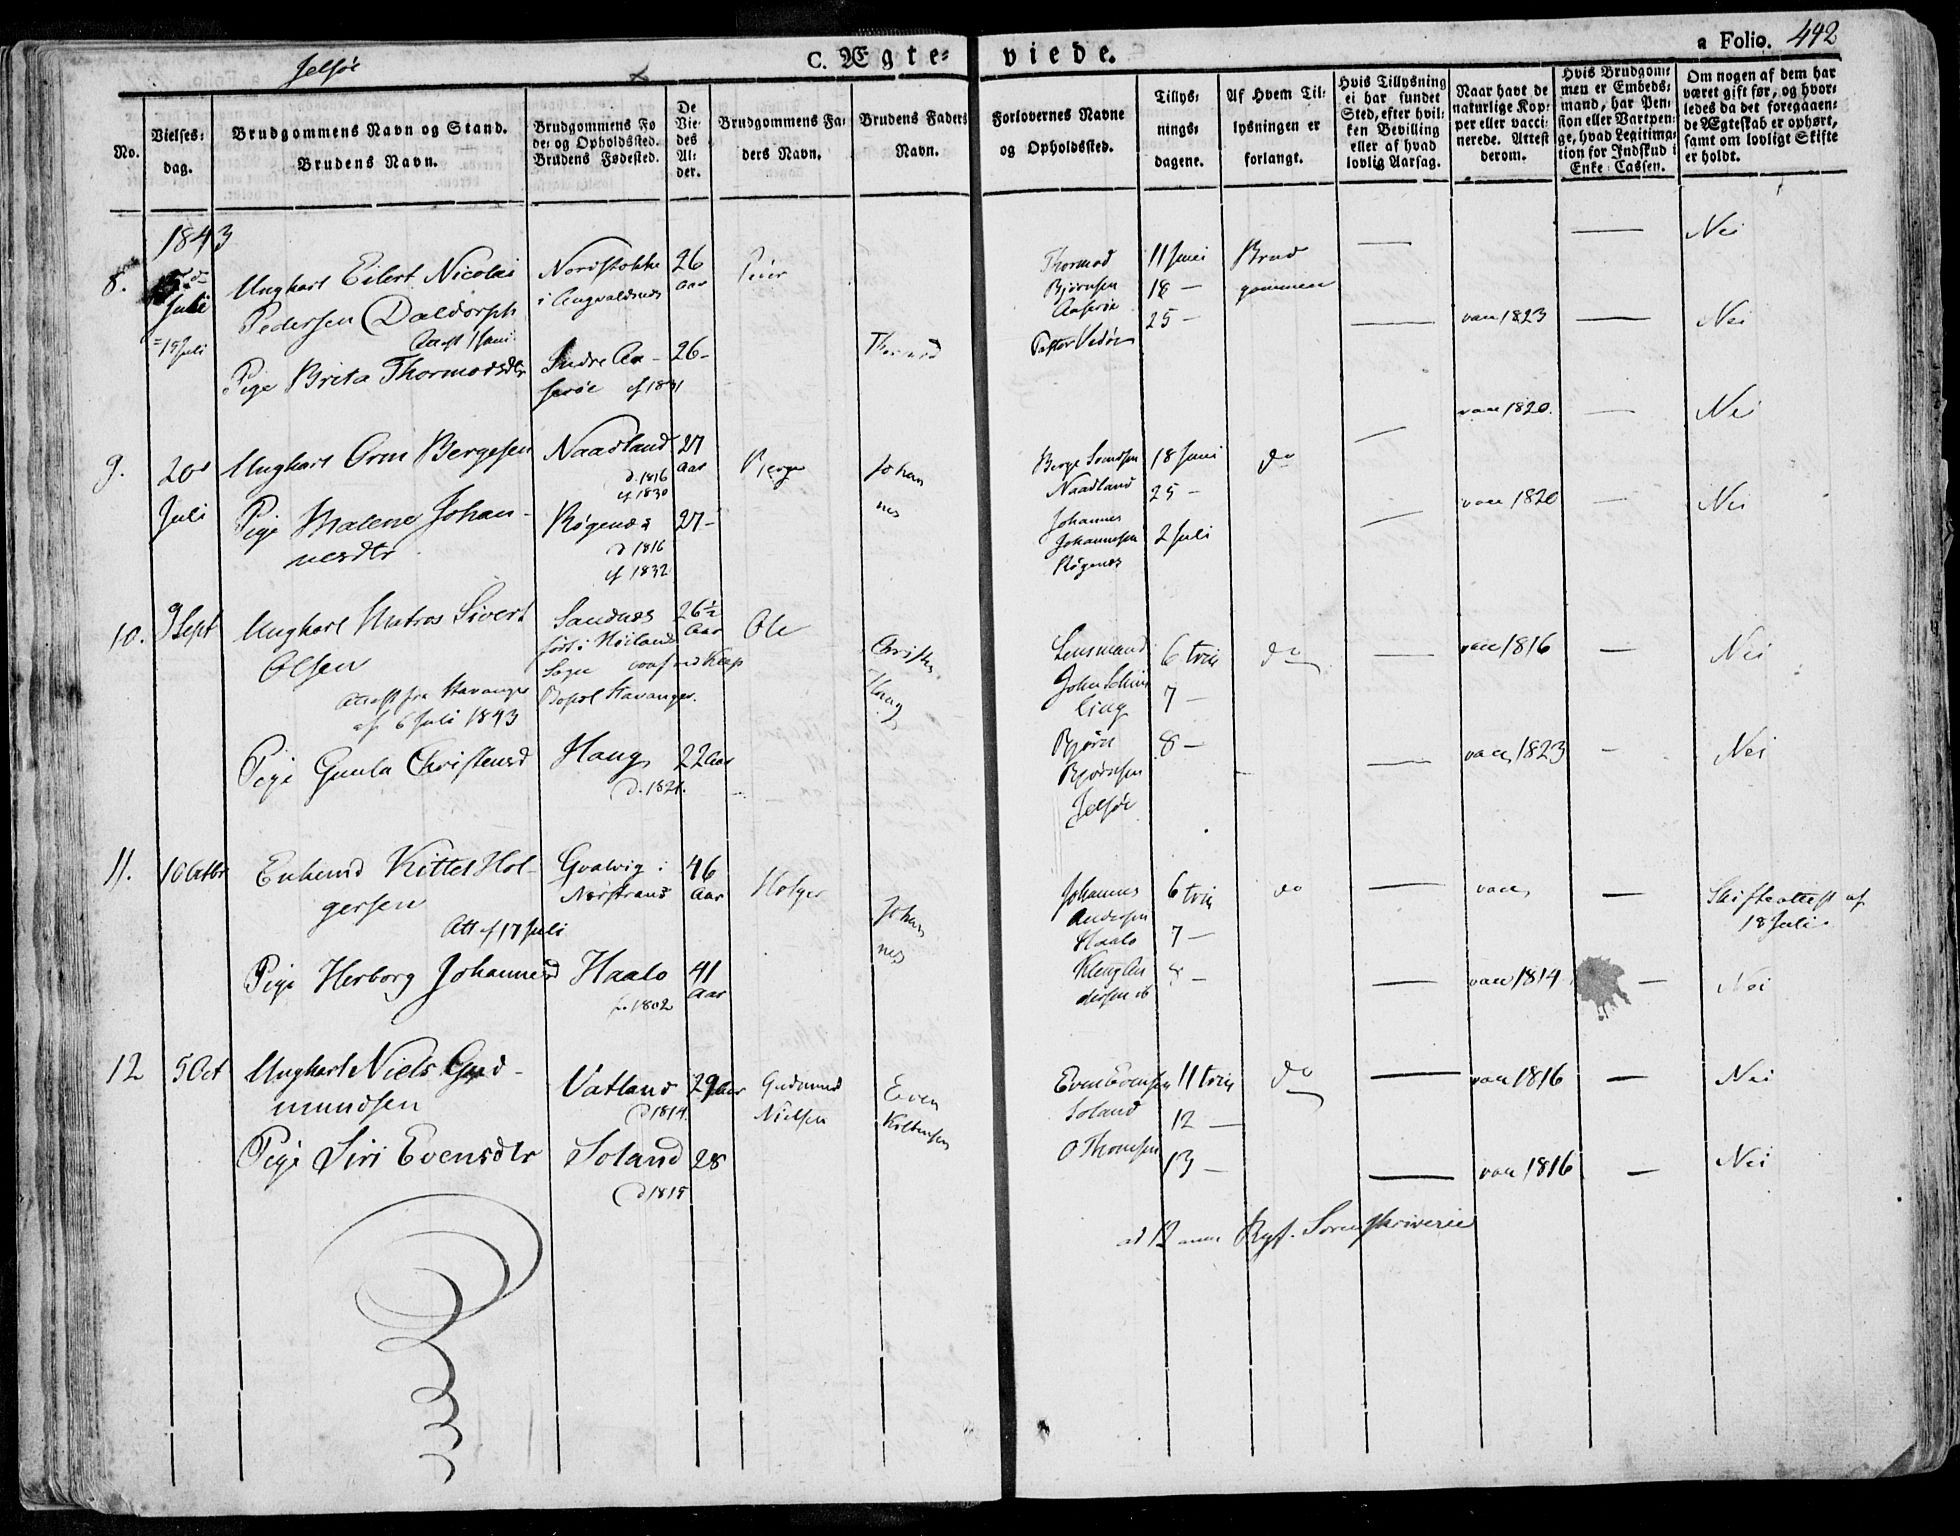 Jelsøe
C. Ægte-viede.
a Folio. 492
No.
Vielses-dag.
Brudgommens Navn og Stand. Brudens Navn.
Brudgommens Fode- og Opholdssted. Brudens Fødested.
De Viedes Alder.
Brudgommens Faders Navn.
Brudens Faders Navn.
Forlovernes Navne og Opholdssted.
Tillysningsdagene.
Af Hvem Tillysningen er forlangt.
Hvis Tillysning ei har fundet Sted, efter hvilken Bevilling eller af hvad lovlig Aarsag.
Naar havt de naturlige Kopper eller vaccinerede. Attest derom.
Hvis Brudgommen er Embedsmand, har Pension eller Vartpenge, hvad Legitimation for Indskud i Enke-Cassen.
Om nogen af dem har været gift før, og hvorledes da det foregaaende Ægteskab er ophørt, samt om lovligt Skifte er holdt.
1843
8.
Juli
Ungkarl Eilert Nicolai
Pedersen Daldorph
Pige Brita Thormodsdtr
Nordstokke
i Augvaldsnes
Indre Aa-
serøe cf 1831
26
Aar
26-
Peder
Thormod
Thormod
Bjørnsen
Aaserøe
11 Juni
18 —
25 —
Brud
gommen
vac 1823
Nei
Nei
9.
20d
Juli
Ungkarl Orm Bergesen
Pige Malene Johan-
nesdtr
Naadland
d. 1816
cf 1830
Røgenæs
d 1816
cf 1832
27
Aar
27-
Berge
Johan
nes
Berge Svendsen
Naadland
Johannes
Johannesen
Røgenes
18 Juni
25 —
2 Juli
do
vac 1820.
vac 1820
Nei
Nei
10.
9 Sept
Ungkarl Matros Sivert
Olsen
Attest fra Stavanger
af 6 Juli 1843
Pige Gunla Christensd
Sandnæs
født i Høiland
Sogn
Bopæl Stavanger.
Haug
d. 1821.
26½
Aar
22 Aar
Ole
Christen
Haug
Lensmand
John Schiii
ling
Bjørn
Bjørnsen
Jelsøe
6 trin
7 —
8 —
do
vac 1816
vac 1823
Nei
Nei
11.
10 Octbr
Enkemd Kittel Hol-
gersen
Att af 17 Juli
Pige Herborg Johannesd
Gvalvig i
Nerstrand
Haalo
f. 1802
46
Aar
41
Aar
Holger
Johan
nes
Johannes
Andersen
Haalo
6 trin
7 —
8 —
do
vac
vac 1814
Skifteattest af
18 Juli
Nei
12
5 Oct
Ungkarl Niels Gud-
mundsen
Pige Siri Evensdtr
Vatland
d 1814.
Soland
d 1815
29 Aar
28
Gudmund
Nielsen
Even
Even Evensen
Soland
O Thomsen
11 trin
12 —
13 —
do
vac 1816
vac 1816
Nei
Nei
ad 12 Ryf. Sorenskriverie